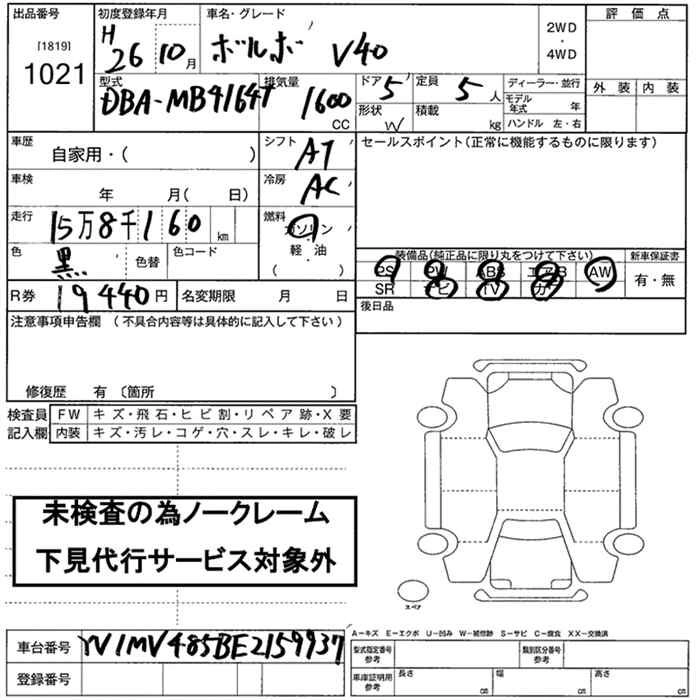 出品番号 初度登録年月 車名・グレード 評価点
[1819] 1021 H26 10月 ボルボ V40 2WD・4WD
型式 排気量 ドア 定員 ディーラー・並行 外装 内装
DBA-MB4164T 1600CC 5 5人 モデル年式 年
形状 W 積載 kg ハンドル 左・右
車歴 自家用・( ) シフト AT セールスポイント(正常に機能するものに限ります)
車検 年 月( 日) 冷房 AC
走行 15万8千160km 燃料 ガソリン
色 黒 色替 色コード 軽・油 ( ) 装備品(純正品に限り丸をつけて下さい) 新車保証書
PS PW ABS エアB AW 有・無
R券 19440円 名変期限 月 日 SR ナビ TV カワ
後日品
注意事項申告欄 (不具合内容等は具体的に記入して下さい)
修復歴 有 〔箇所 〕
検査員 FW キズ・飛石・ヒビ割・リペア跡・X要
記入欄 内装 キズ・汚レ・コゲ・穴・スレ・キレ・破レ
未検査の為ノークレーム
下見代行サービス対象外
スペア
A-キズ E-エクボ U-凹み W-補修跡 S-サビ C-腐食 XX-交換済
車台番号 YV1MV485BE2159937 型式指定番号 参考 類別区分番号 参考
登録番号 車庫証明用 参考 長さ cm 幅 cm 高さ cm